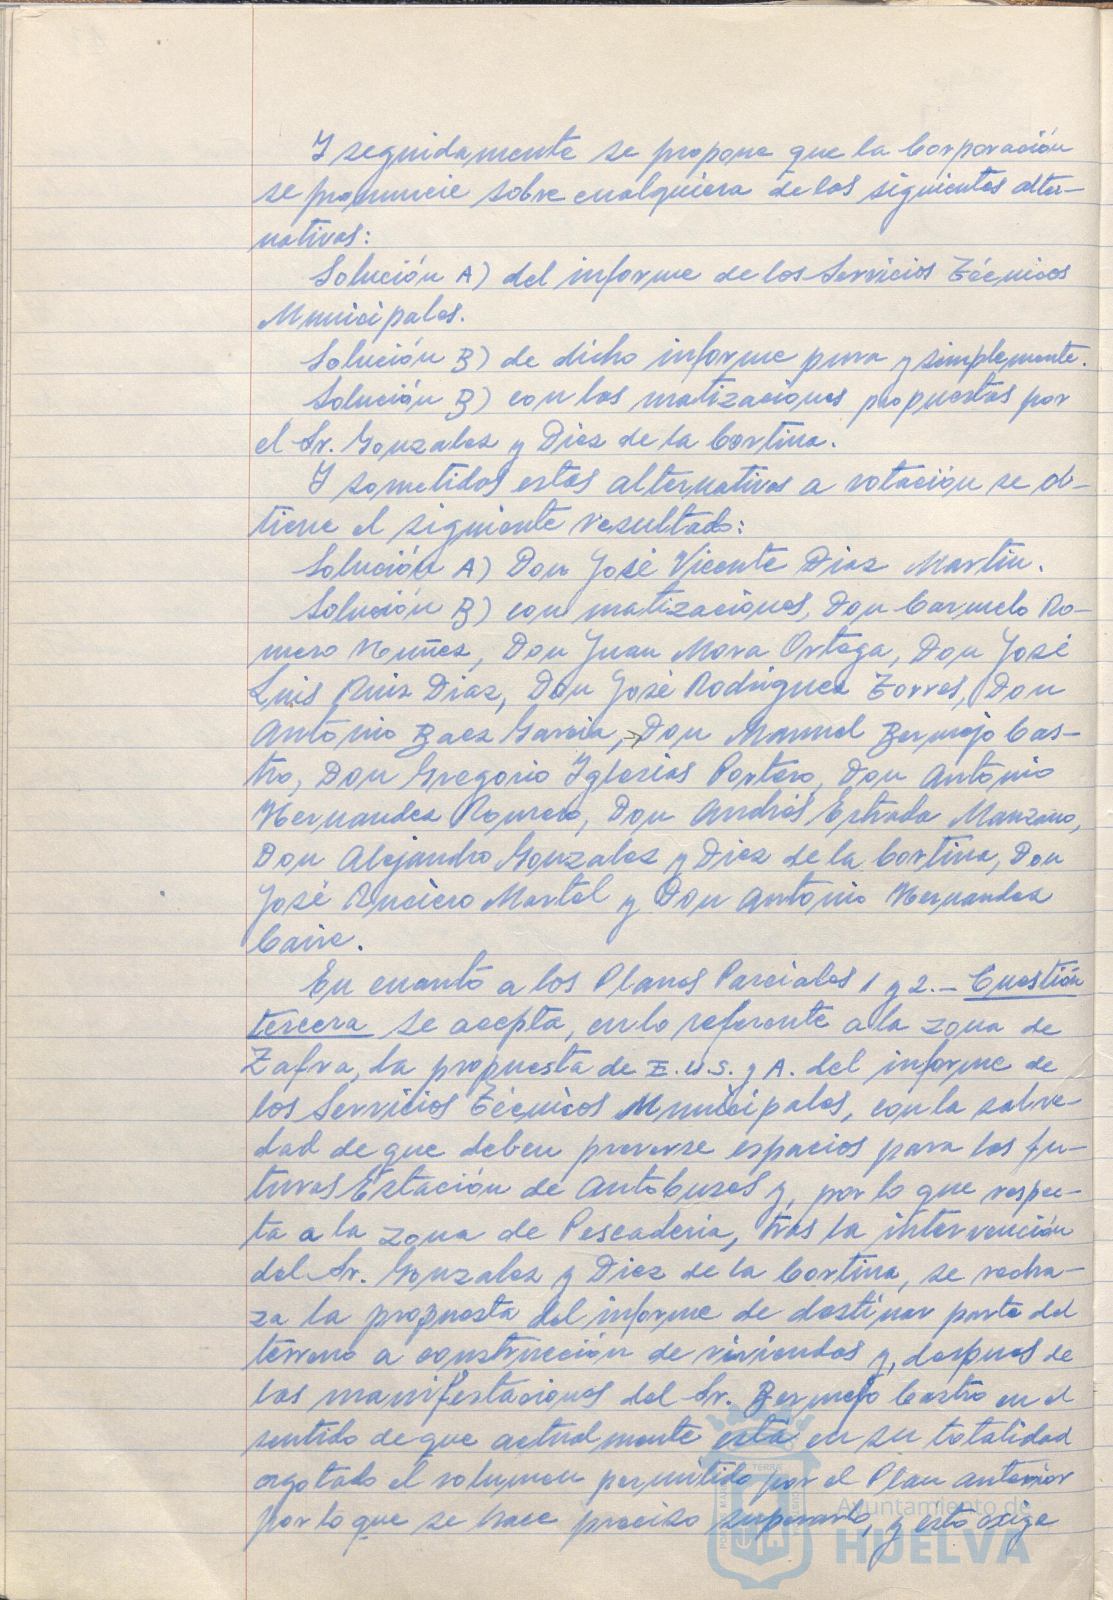 Y seguidamente se propone que la Corporación
se pronuncie sobre cualquiera de las siguientes alter-
nativas:
Solución A) del informe de los Servicios Técnicos
Municipales.
Solución B) de dicho informe pura y simplemente.
Solución B) con las matizaciones propuestas por
el Sr. Gonzalez y Diez de la Cortina.
Y sometidas estas alternativas a votación se ob-
tiene el siguiente resultado:
Solución A) Don José Vicente Diaz Martin.
Solución B) con matizaciones, Don Carmelo Ro-
mero Nuñez, Don Juan Mora Ortega, Don José
Luis Ruiz Diaz, Don José Rodriguez Torres, Don
Antonio Baez Garcia, Don Manuel Bermejo Cas-
tro, Don Gregorio Iglesias Portero, Don Antonio
Hernandez Romero, Don Andrés Estrada Manzano,
Don Alejandro Gonzalez y Diez de la Cortina, Don
José Ruciero Martel y Don Antonio Hernandez
Caire.
En cuanto a los Planes Parciales 1 y 2.- Cuestión
tercera se acepta, en lo referente a la zona de
Zafra, la propuesta de E.U.S. y A. del informe de
los Servicios Técnicos Municipales, con la salve-
dad de que deben preverse espacios para las fu-
turas Estación de Autobuses y, por lo que respec-
ta a la zona de Pescaderia, tras la intervención
del Sr. Gonzalez y Diez de la Cortina, se recha-
za la propuesta del informe de destinar parte del
terreno a construcción de viviendas y, despues de
las manifestaciones del Sr. Bermejo Castro en el
sentido de que actualmente está en su totalidad
agotado el volumen permitido por el Plan anterior
por lo que se hace preciso superarlo, y esto exige
Ayuntamiento de
HUELVA